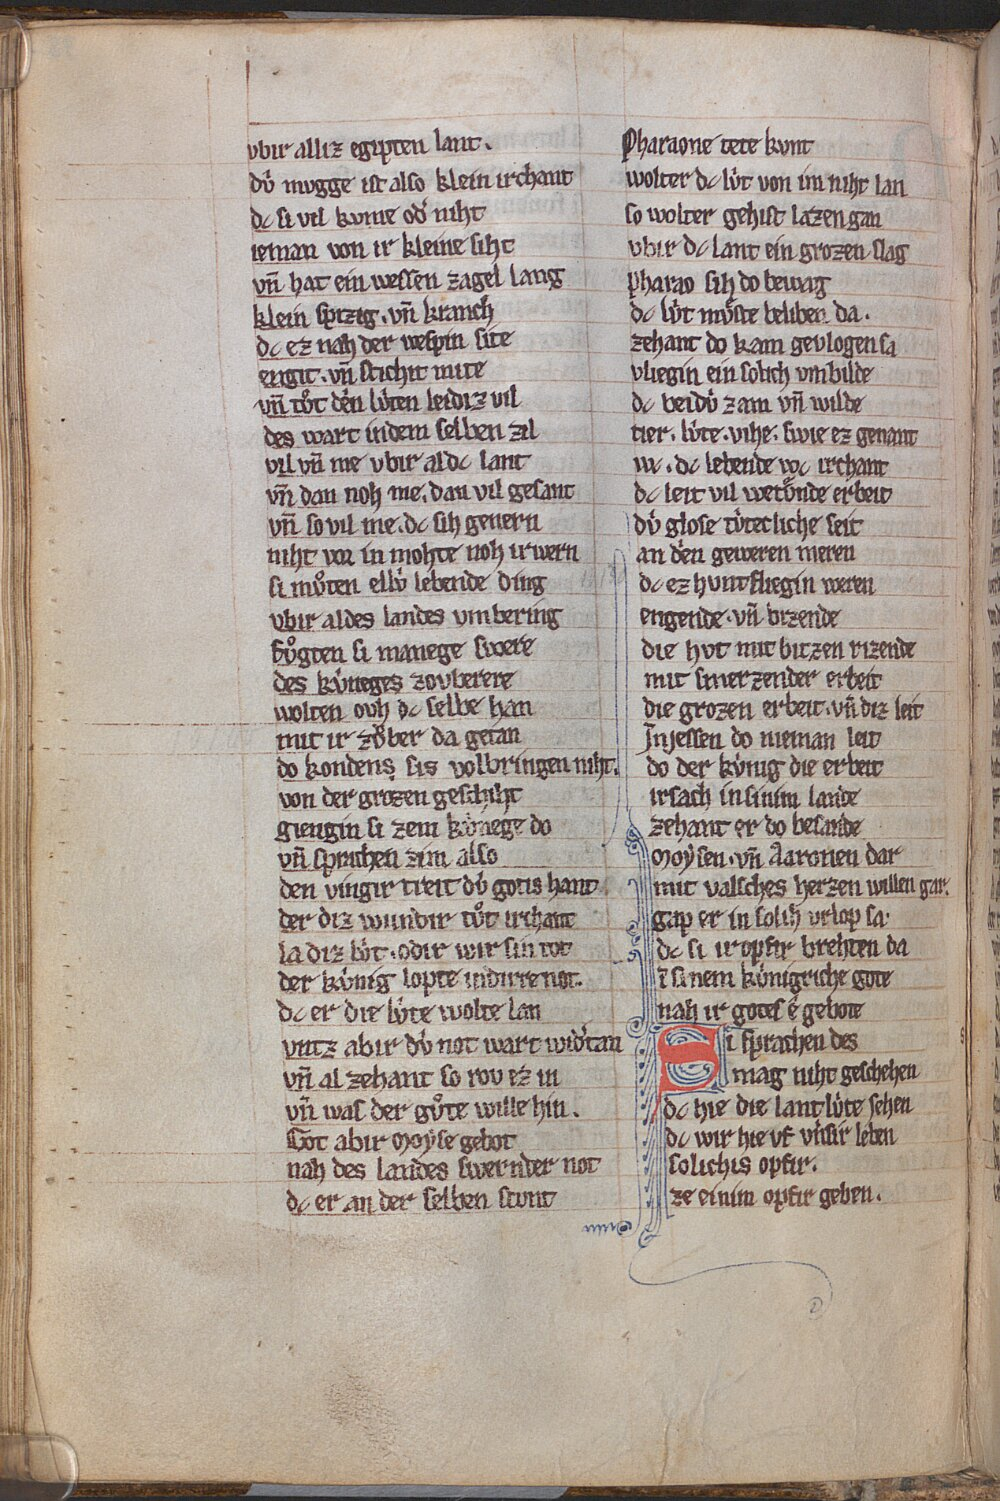 vbir alliz egipten lant.
dv̍ mvgge ist also klein irchant
dc si vil kvme od̍ niht
ieman von ir kleine siht
vn̄ hat ein wessen zagel lang
klein spizig. vn̄ kranch
dc ez nah der wespin site
engit. vn̄ stichit mite
vn̄ tv̊t den lv̍ten leidiz vil
des wart indem selben zil
vil vn̄ me vbir al dc lant
vn̄ dan noh me. dan vil gesant
vn̄ so vil me. dc sih genern
niht vor in mohte noh irwern
si mv̊ten ellv̍ lebende ding
vbir al des landes vmbering
fv̊gten si manege swere
des kv̍neges zovberere
wolten ovh dc selbe han
mit ir zo̍ber da getan
do kondens sis volbringen niht.
von der grozen geschiht
giengin si zem kv̍nege do
vn̄ sprachen zim also
den vingir treit dv̍ gotis hant
der diz wundir tv̊t irchant
la diz lv̍t. odir wir sin tot
der kv̍nig lopte indirre not.
dc er die lv̍te wolte lan
vntz abir dv̍ not wart wid̍tan
vn̄ al zehant so rov ez in
vn̄ was der gv̊te wille hin.
Got abir Moyse gebot
nah des landes swernder not
dc er an der selben stvnt
Pharaone tete kvnt
wolter dc lv̍t von im niht lan
so wolter gehist lazen gan
vbir dc lant ein grozen slag
Pharao sih do bewag
dc lv̍t mv̊ste beliben da.
zehant do kam gevlogen sa
vliegin ein solich vmbilde
dc beidv̍ zam vn̄ wilde
tier. lv̍te. vihe. swie ez genant
wc. dc lebende wc irchant
dc leit vil wetv̊nde erbeit
dv̍ glose tv̍tecliche seit
an den geweren meren
dc ez hvntfliegin weren
engende. vn̄ bizende
die hvt mit bitzen rizende
mit smerzender erbeit
die grozen erbeit. vn̄ diz leit
Injessen do nieman leit
do der kv̍nig die erbeit
irsach in sinim lande
zehant er do besande
Moysen. vn̄ Aaronen dar
mit valsches herzen willen gar.
gap er in solih vrlop sa.
dc si ir opfir brehten da
ī sinem kv̍nigriche gote
nah ir gotes e gebote
Si sprachen des
mag niht geschehen
dc hie die lantlv̍te sehen
dc wir hie vf vnsir leben
solichis opfir.
ze einim opfir geben.